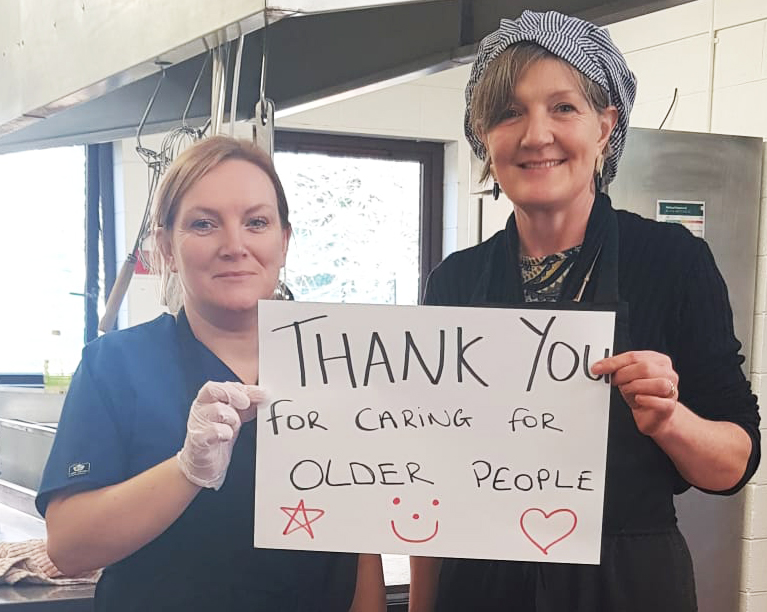 THANK YOU
FOR CARING FOR
OLDER PEOPLE